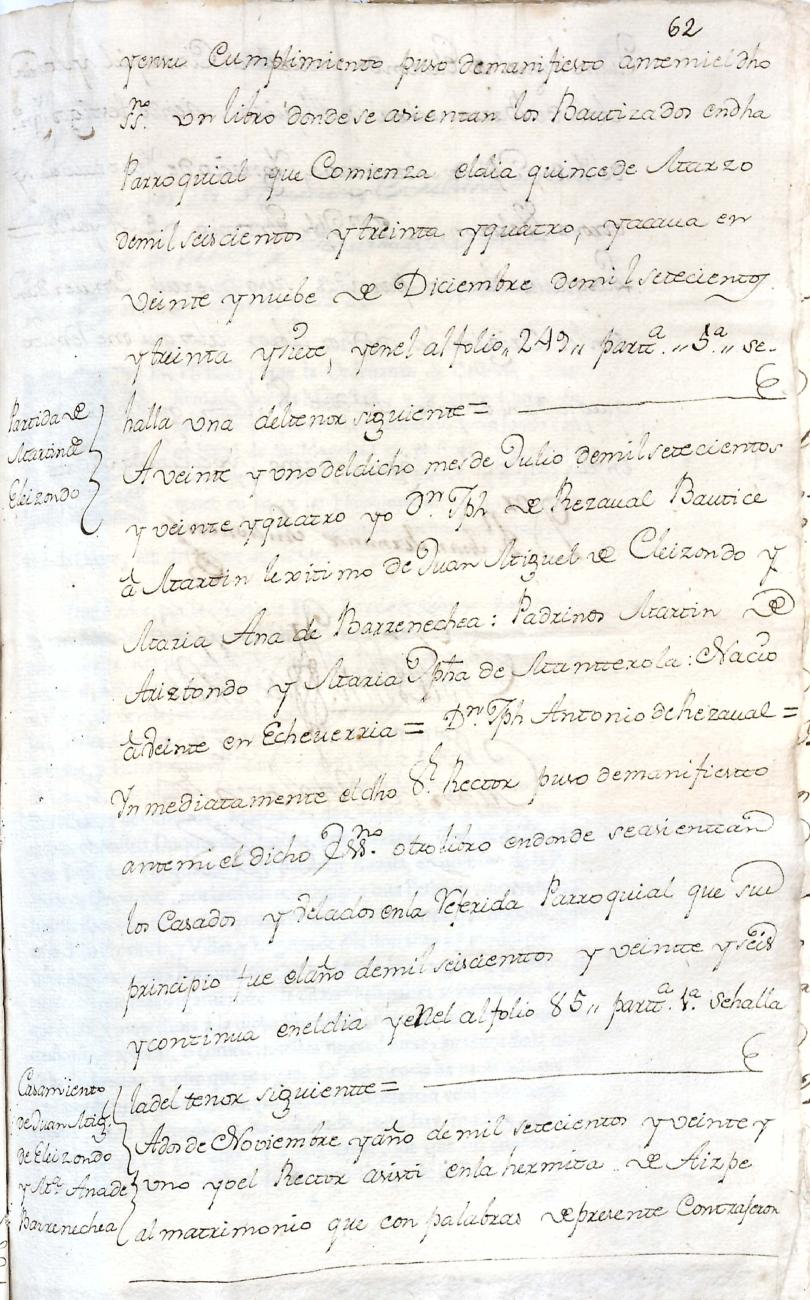 62
yensu Cumplimiento puso demanifiesto antemi el dho
ss.no un libro donde se asientan los Bautizados en dha
Parroquial que Comienza el dia quince de Marzo
de mil seiscientos y treinta y quatro, y acava en
veinte y nuebe de Diciembre de mil setecientos
y treinta y siete, y en el al folio,, 249,, partt.a ,, 5.a ,, se-
halla una del tenor siguiente =
Partida de
Martin de
Eleizondo
A veinte y uno del dicho mes de Julio de mil setecientos
y veinte y quatro yo Dn. Jph de Rezaval Bautice
â Martin lexitimo de Juan Miguel de Eleizondo y
Maria Ana de Barrenechea: Padrinos Martin de
Ariztondo y Maria Jpha de Mantterola: Nacio
â veinte en Echeverria = Dn. Jph Antonio de Rezaval =
In mediatamente el dho Sr. Rector puso demanifiestto
antemi el dicho Ess.no otro libro en donde se asienttan
los Casados y Velados en la Referida Parroquial que su
principio fue el año de mil seiscienttos y veintte y seis
y continua en el dia y en el al folio 85,, partt.a 1.a se halla
la del tenor siguientte =
Casamiento
de Juan Mig.
de Eleizondo
y M.a Ana de
Barrenechea
A dos de Noviembre y año de mil setecientos y veinte y
uno yo el Rector asisti en la hermita de Aizpe
al matrimonio que con palabras de presente Contrajeron